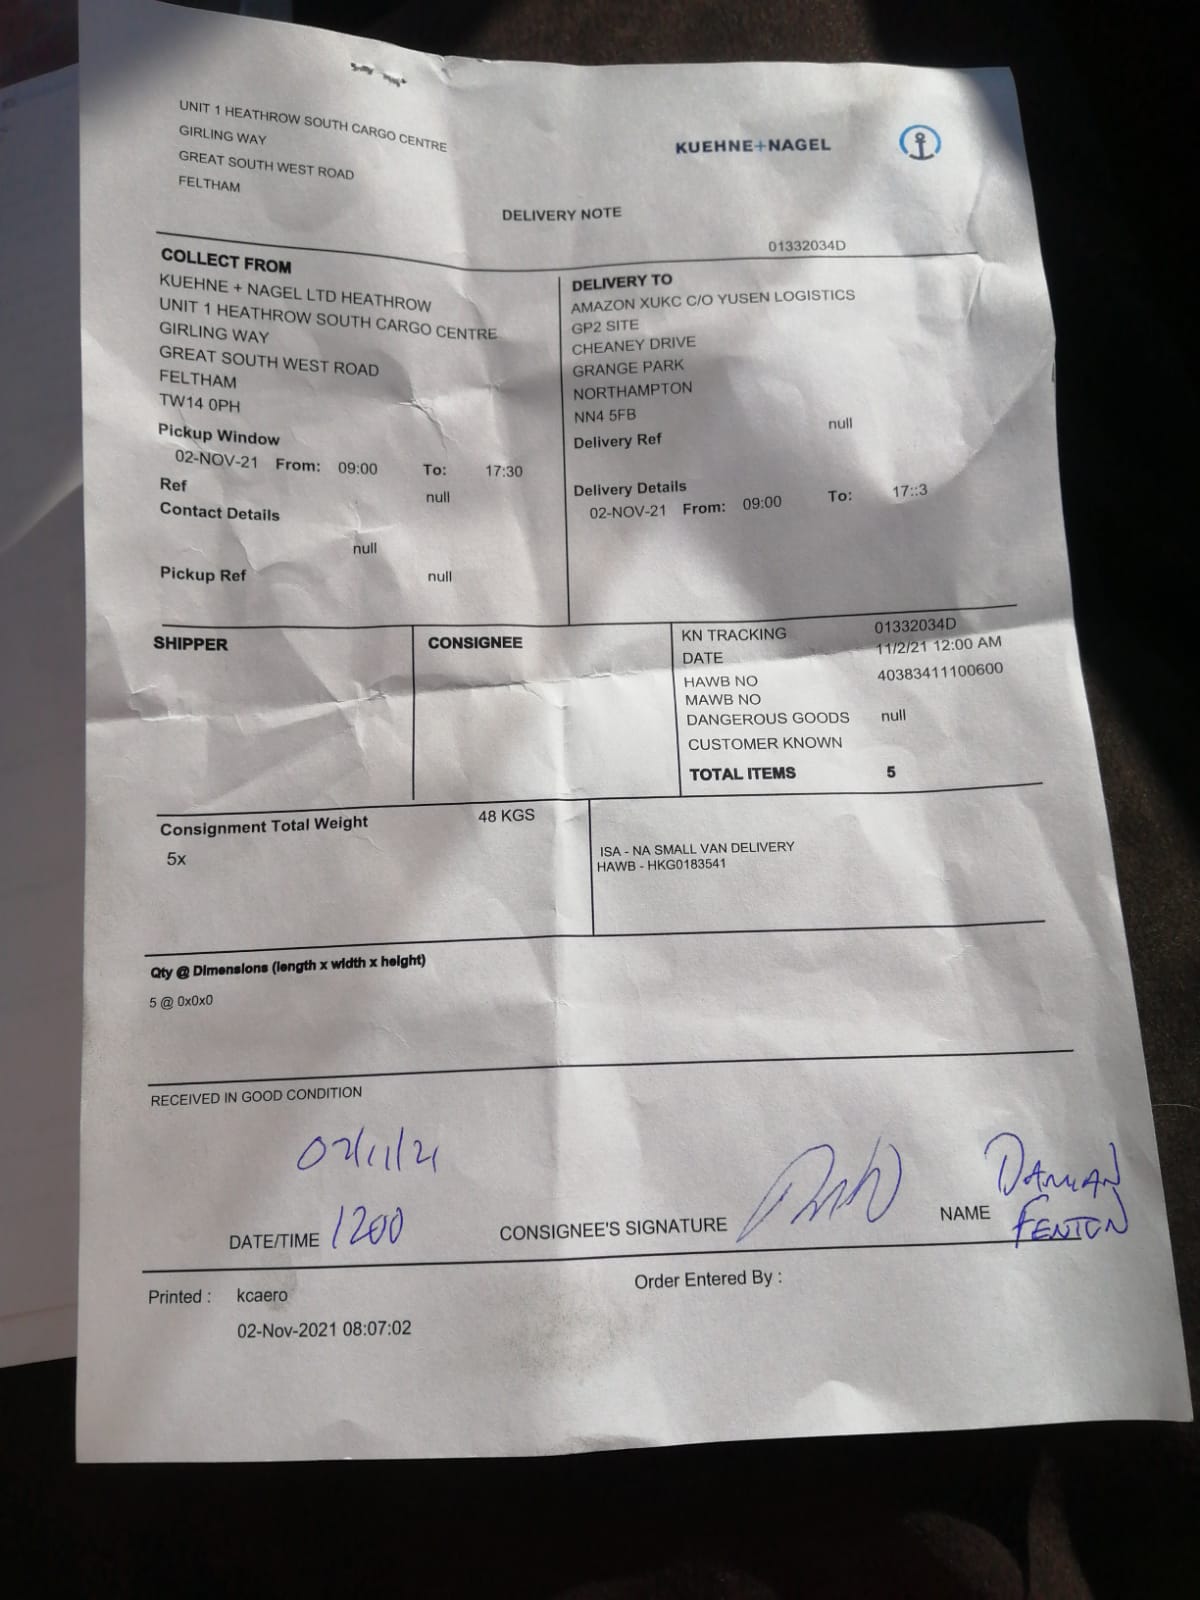 UNIT 1 HEATHROW SOUTH CARGO CENTRE
GIRLING WAY
GREAT SOUTH WEST ROAD
FELTHAM
KUEHNE+NAGEL
DELIVERY NOTE
01332034D
COLLECT FROM
KUEHNE + NAGEL LTD HEATHROW
UNIT 1 HEATHROW SOUTH CARGO CENTRE
GIRLING WAY
GREAT SOUTH WEST ROAD
FELTHAM
TW14 0PH
Pickup Window
02-NOV-21 From: 09:00 To: 17:30
Ref null
Contact Details
null
Pickup Ref null
DELIVERY TO
AMAZON XUKC C/O YUSEN LOGISTICS
GP2 SITE
CHEANEY DRIVE
GRANGE PARK
NORTHAMPTON
NN4 5FB
Delivery Ref null
Delivery Details
02-NOV-21 From: 09:00 To: 17::3
SHIPPER
CONSIGNEE
KN TRACKING 01332034D
DATE 11/2/21 12:00 AM
HAWB NO 40383411100600
MAWB NO
DANGEROUS GOODS null
CUSTOMER KNOWN
TOTAL ITEMS 5
Consignment Total Weight 48 KGS
5x
ISA - NA SMALL VAN DELIVERY
HAWB - HKG0183541
Qty @ Dimensions (length x width x height)
5 @ 0x0x0
RECEIVED IN GOOD CONDITION
02/11/21
DATE/TIME 1200
CONSIGNEE'S SIGNATURE
NAME DAMIAN
FENTON
Printed : kcaero
02-Nov-2021 08:07:02
Order Entered By :